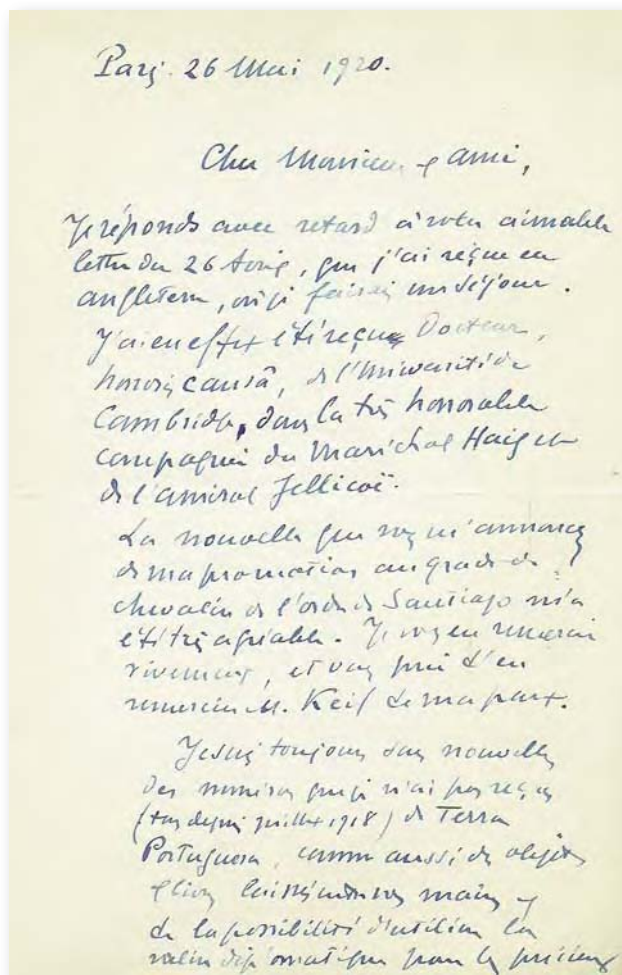 Paris. 26 Mai 1920.
Cher Monsieur et ami,
Je réponds avec retard à votre aimable
lettre du 26 Avril, que j'ai reçue en
angleterre, où je faisais un séjour.
J'ai en effet été reçu Docteur,
honoris causâ, de l'Université de
Cambridge, dans la très honorable
compagnie du Maréchal Haig et
de l'amiral Jellicoë.
La nouvelle que vous m'annoncez
de ma promotion au grade de
chevalier de l'ordre de Santiago m'a
été très agréable. Je vous en remercie
vivement, et vous prie d'en
remercier M. Keil de ma part.
Je suis toujours sans nouvelles
des numéros que je n'ai pas reçus
(tous depuis juillet 1918) de Terra
Portuguesa, comme aussi des objets
laissés entre vos mains et
de la possibilité d'utiliser la
valise diplomatique pour les